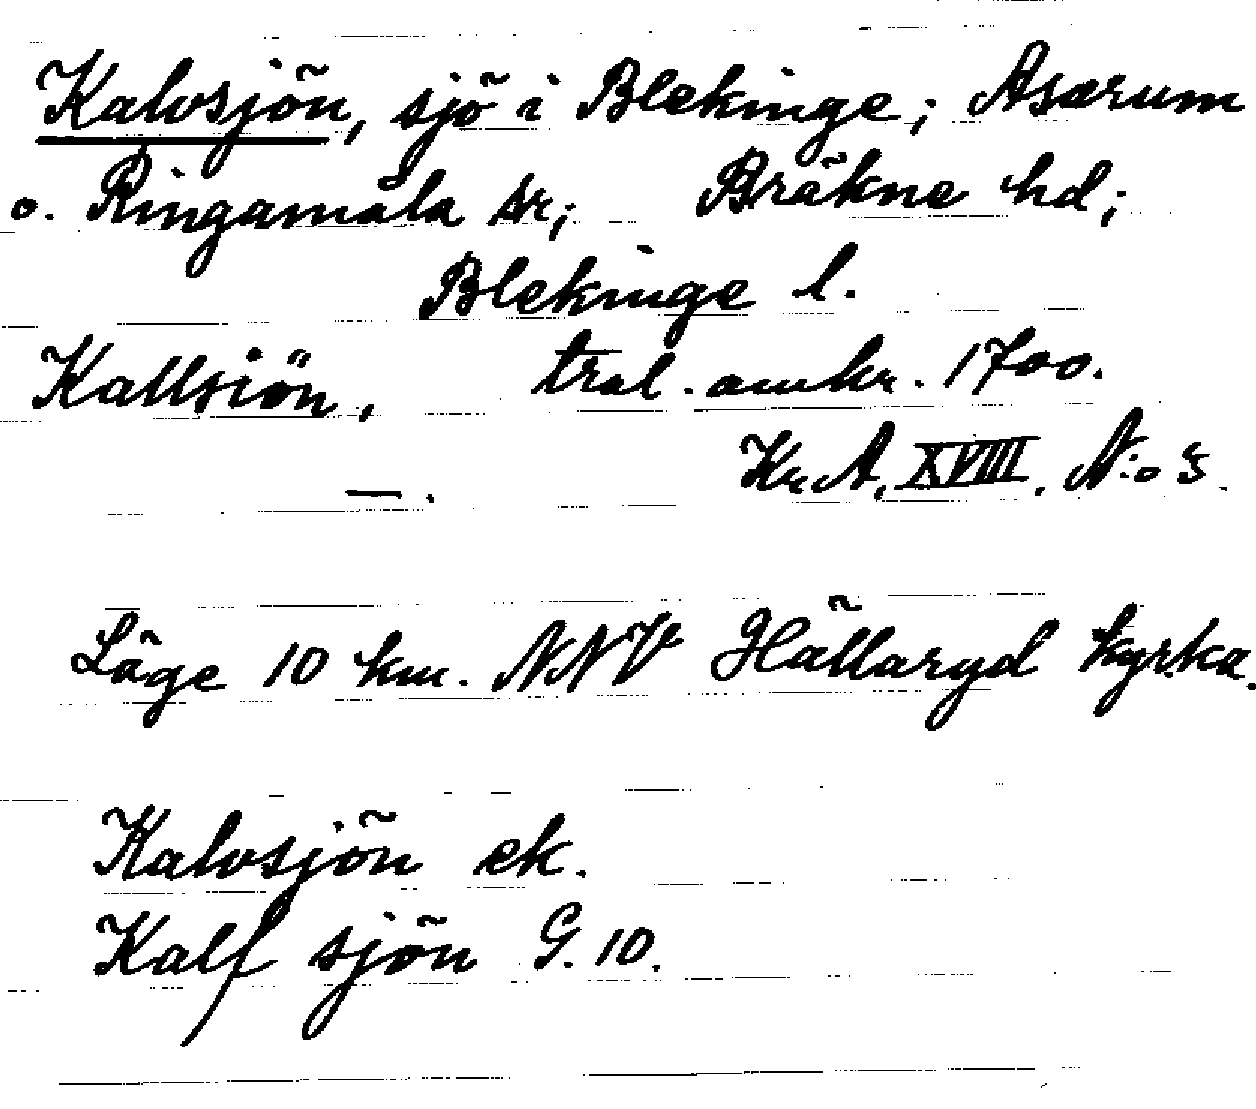 Kalvsjön, sjö i Blekinge; Asarum
o. Ringamåla sr; Bräkne hd;
Blekinge l.
Kallsiön, tral. omkr. 1700.
—. Kr.A. XVIII. N:o 3.
Läge 10 km. NNV Hällaryd kyrka.
Kalvsjön ek.
Kalf sjön G. 10.